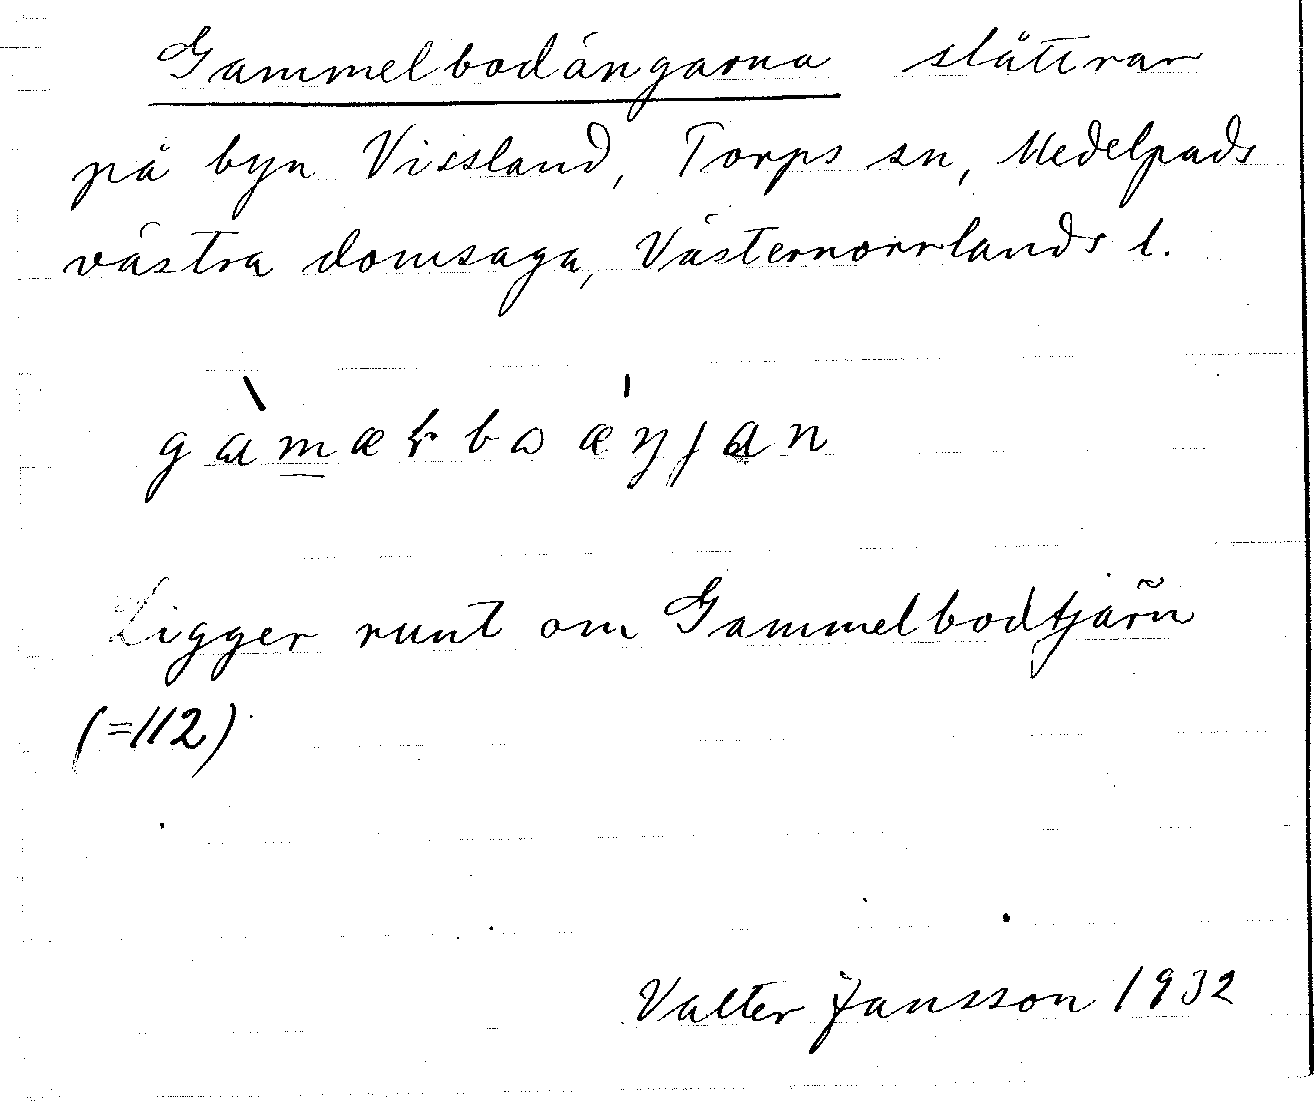 Gammelbodängarna slåttrar
på byn Vissland, Torps sn, Medelpads
västra domsaga, Västernorrlands l.
Ligger runt om Gammelbodtjärn
(=112)
Valter Jansson 1932